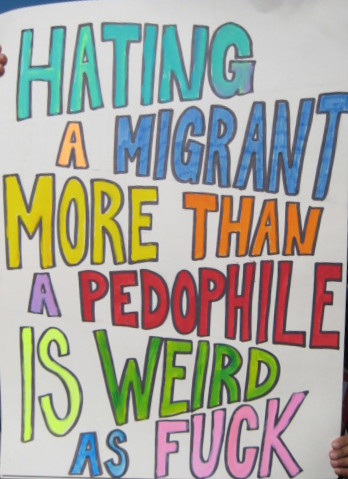 HATING
A MIGRANT
MORE THAN
A PEDOPHILE
IS WEIRD
AS FUCK